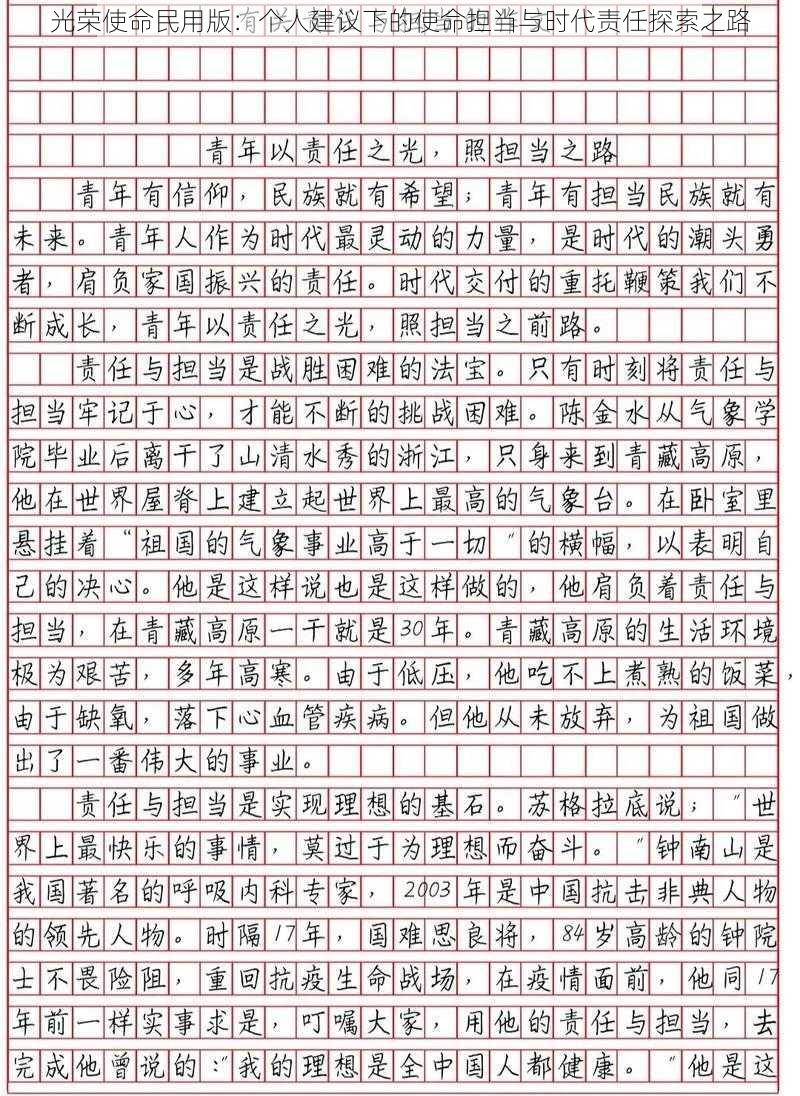 光荣使命民用版：个人建议下的使命担当与时代责任探索之路
青年以责任之光，照担当之路
青年有信仰，民族就有希望；青年有担当民族就有
未来。青年人作为时代最灵动的力量，是时代的潮头勇
者，肩负家国振兴的责任。时代交付的重托鞭策我们不
断成长，青年以责任之光，照担当之前路。
责任与担当是战胜困难的法宝。只有时刻将责任与
担当牢记于心，才能不断的挑战困难。陈金水从气象学
院毕业后离干了山清水秀的浙江，只身来到青藏高原，
他在世界屋脊上建立起世界上最高的气象台。在卧室里
悬挂着“祖国的气象事业高于一切”的横幅，以表明自
己的决心。他是这样说也是这样做的，他肩负着责任与
担当，在青藏高原一干就是30年。青藏高原的生活环境
极为艰苦，多年高寒。由于低压，他吃不上煮熟的饭菜，
由于缺氧，落下心血管疾病。但他从未放弃，为祖国做
出了一番伟大的事业。
责任与担当是实现理想的基石。苏格拉底说；“世
界上最快乐的事情，莫过于为理想而奋斗。”钟南山是
我国著名的呼吸内科专家，2003年是中国抗击非典人物
的领先人物。时隔17年，国难思良将，84岁高龄的钟院
士不畏险阻，重回抗疫生命战场，在疫情面前，他同17
年前一样实事求是，叮嘱大家，用他的责任与担当，去
完成他曾说的：“我的理想是全中国人都健康。”他是这